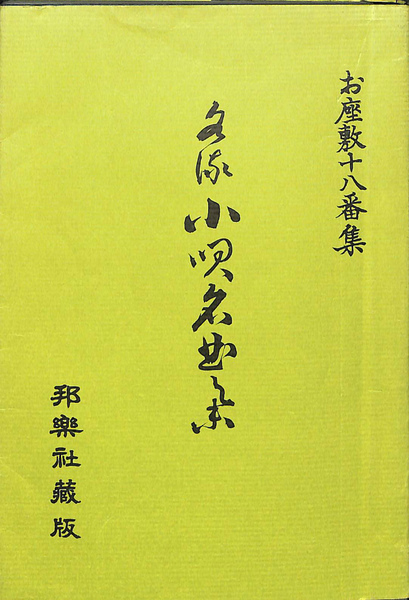 お座敷十八番集
各流小唄名曲集
邦樂社藏版